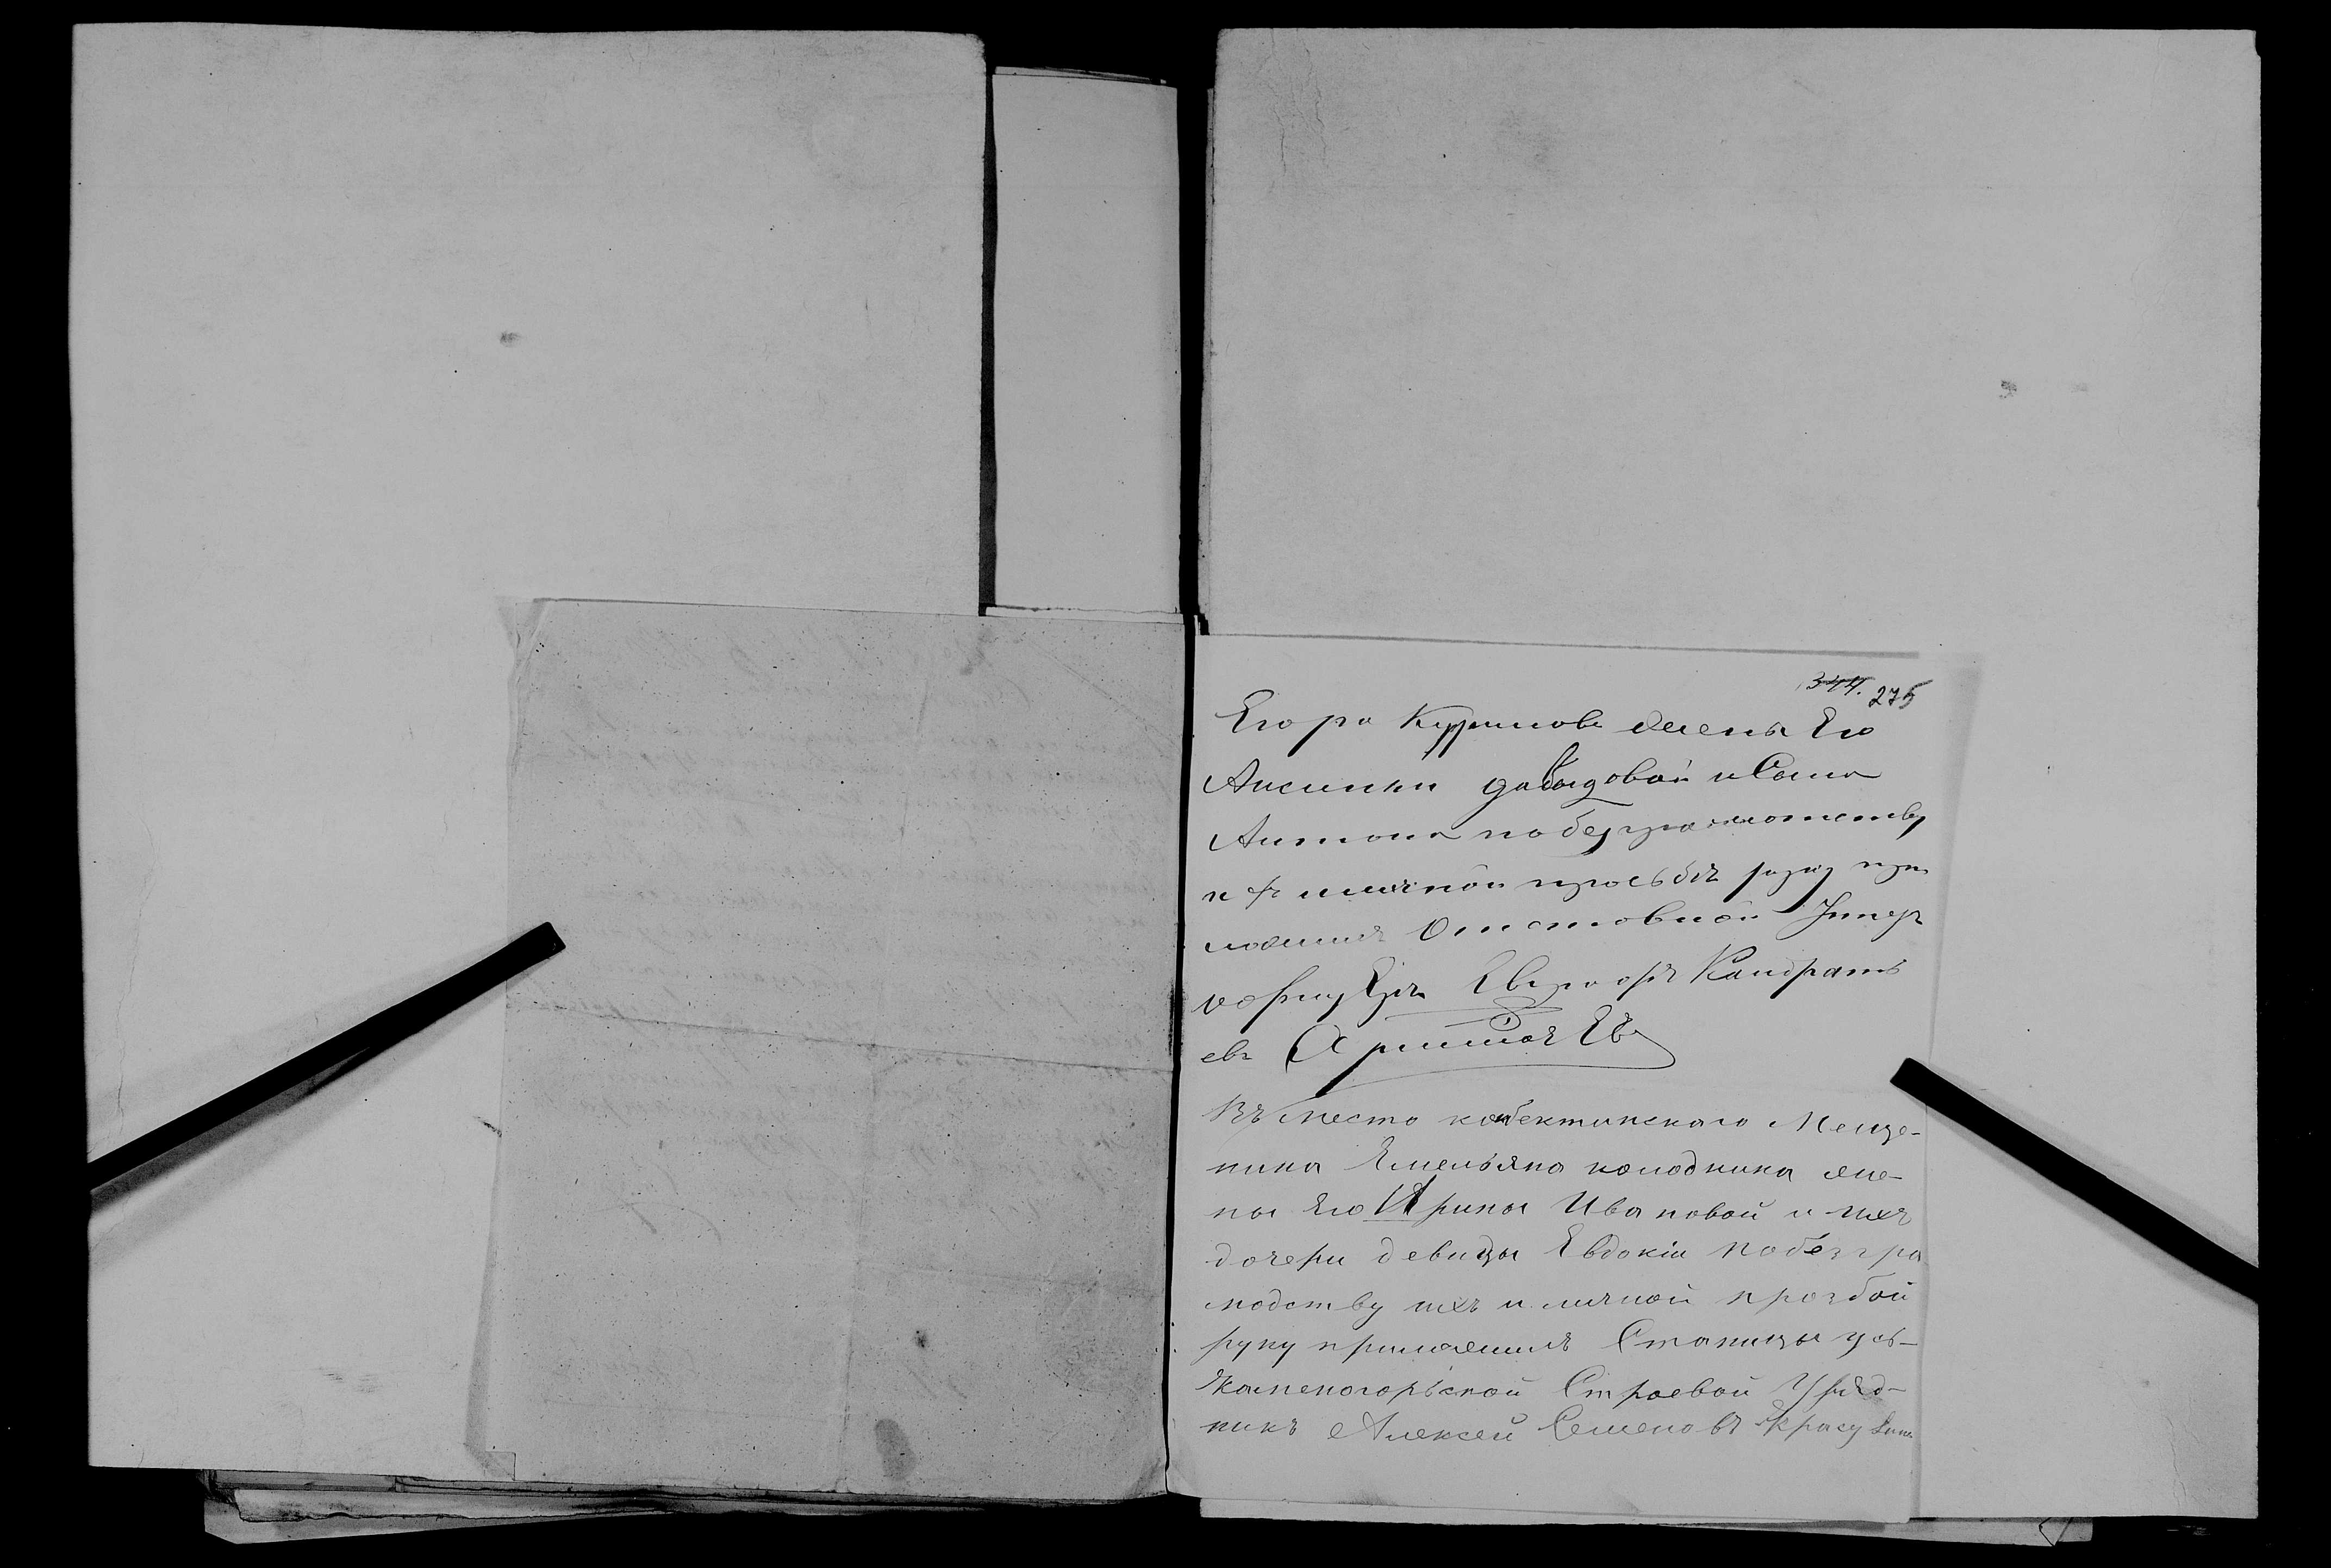 344. 275
Егора Курпнова жены Его
Аксиньи давыдовой и Сына
Антона по безграмотству
и личной прозьбѣ руку при
ложилъ Отставной Унтеръ
офицеръ Егоръ Кандрать
евъ
Въместо кокбектинскаго Меще-
нина Емельяна колодкина же-
ны Его Ирины Ивановой и ихъ
дочери девицы Евдокіи побезгра
модству ихъ и личной прозбой
руку приложилъ Станицы усь-
Каменогорьской Строевой Уряд-
никъ Алексей Семеновъ